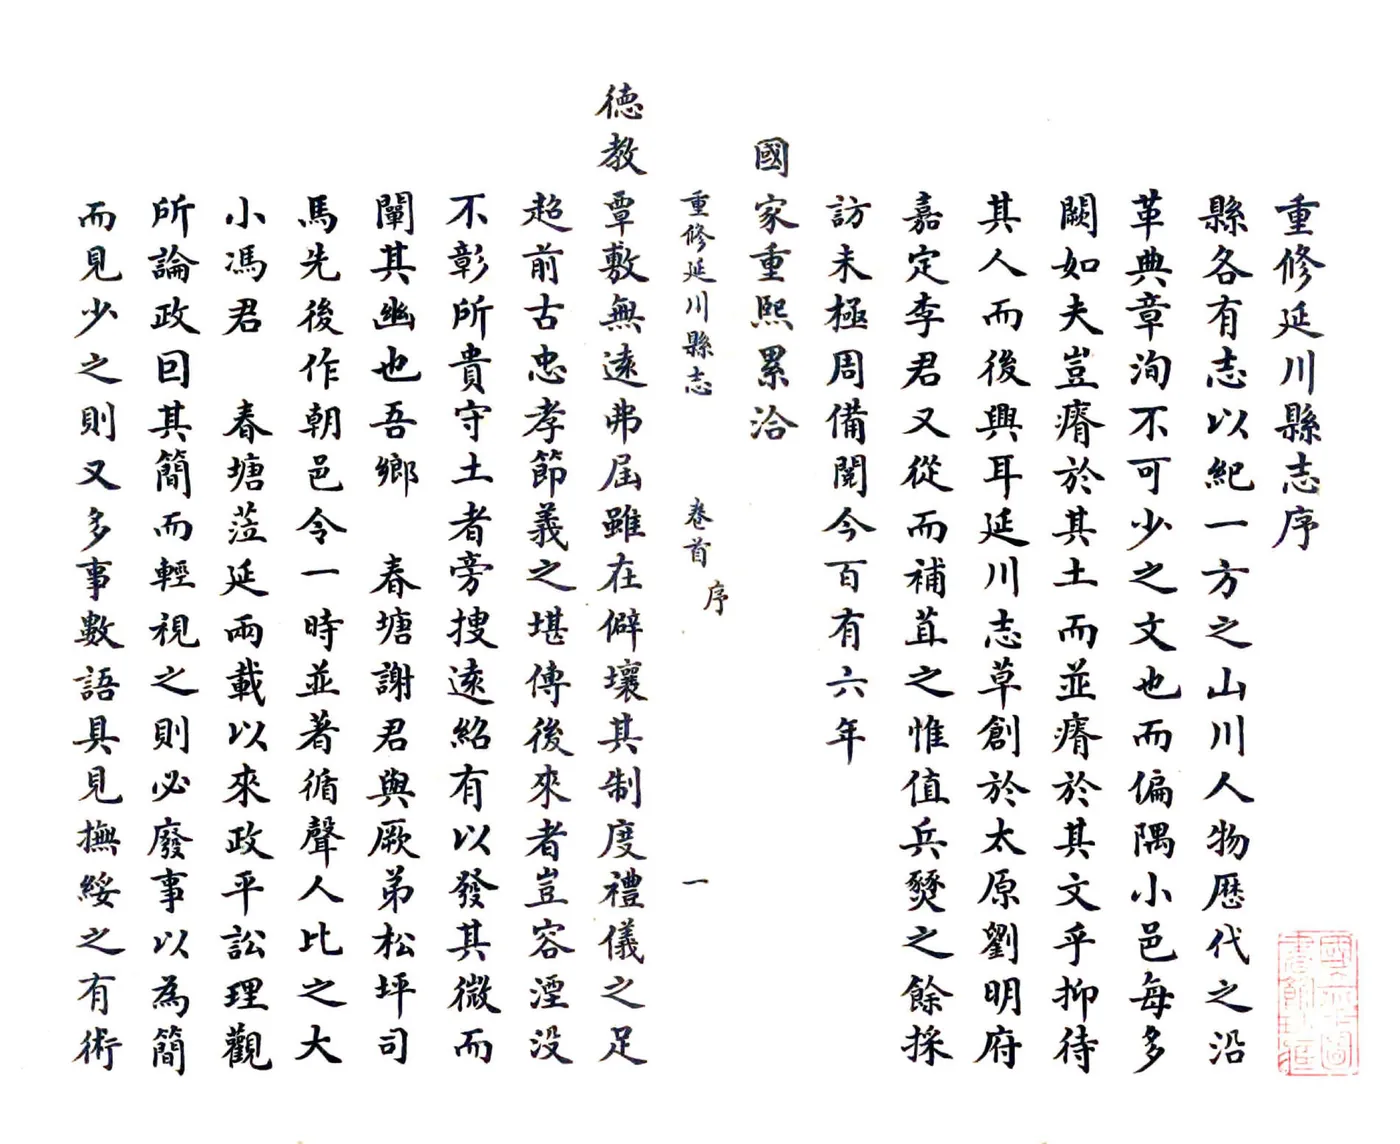 重修延川縣志序
縣各有志以紀一方之山川人物歷代之沿
革典章洵不可少之文也而偏隅小邑每多
闕如夫豈瘠於其土而並瘠於其文乎抑待
其人而後興耳延川志草創於太原劉明府
嘉定李君又從而補苴之惟值兵燹之餘採
訪未極周備閱今百有六年
國家重熙累洽
重修延川縣志 卷首 序 一
德教覃敷無遠弗屆雖在僻壤其制度禮儀之足
超前古忠孝節義之堪傳後來者豈容湮沒
不彰所貴守土者旁搜遠紹有以發其微而
闡其幽也吾鄉 春塘謝君與厥弟松坪司
馬先後作朝邑令一時並著循聲人比之大
小馮君 春塘蒞延兩載以來政平訟理觀
所論政曰其簡而輕視之則必廢事以為簡
而見少之則又多事數語具見撫綏之有術